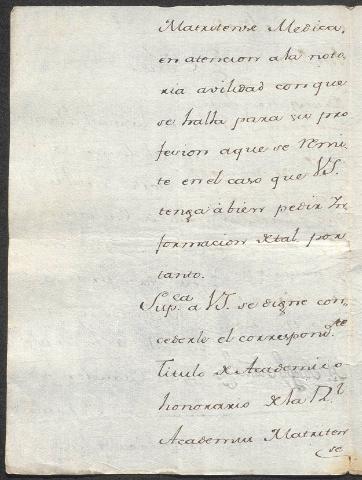 Matritense Medica,
en atencion a la noto
ria avilidad con que
se halla para su pro
fesion a que se remi
te en el caso que VS.
tenga à bien pedir In
formacion de tal por
tanto.
Sup.ca a VS. se digne con
cederle el correspond.te
Titulo de Academico
honorario de la R.l
Academia Matriten
se